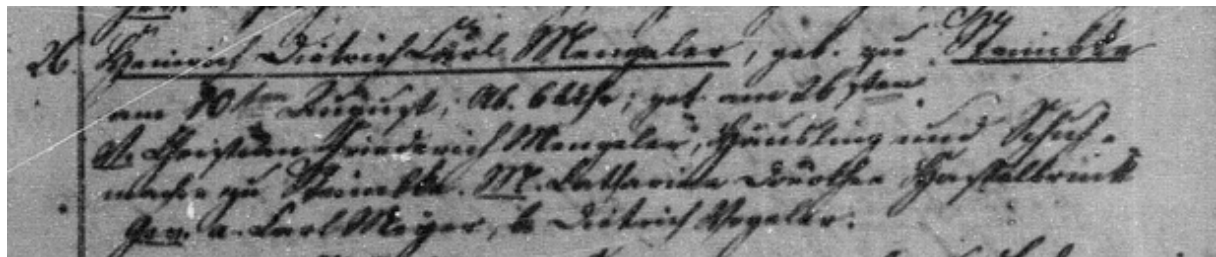 26. Heinrich Dietrich Carl Mengeler, geb. zu Steimbke
am 10ten August, Ab. 6 Uhr; get. am 26sten.
V. Christian Friederich Mengeler, Häusling und Schuh-
macher zu Steimbke. M. Catharine Dorothee
Gev. a. Carl Meyer, b. Dietrich Vogeler.